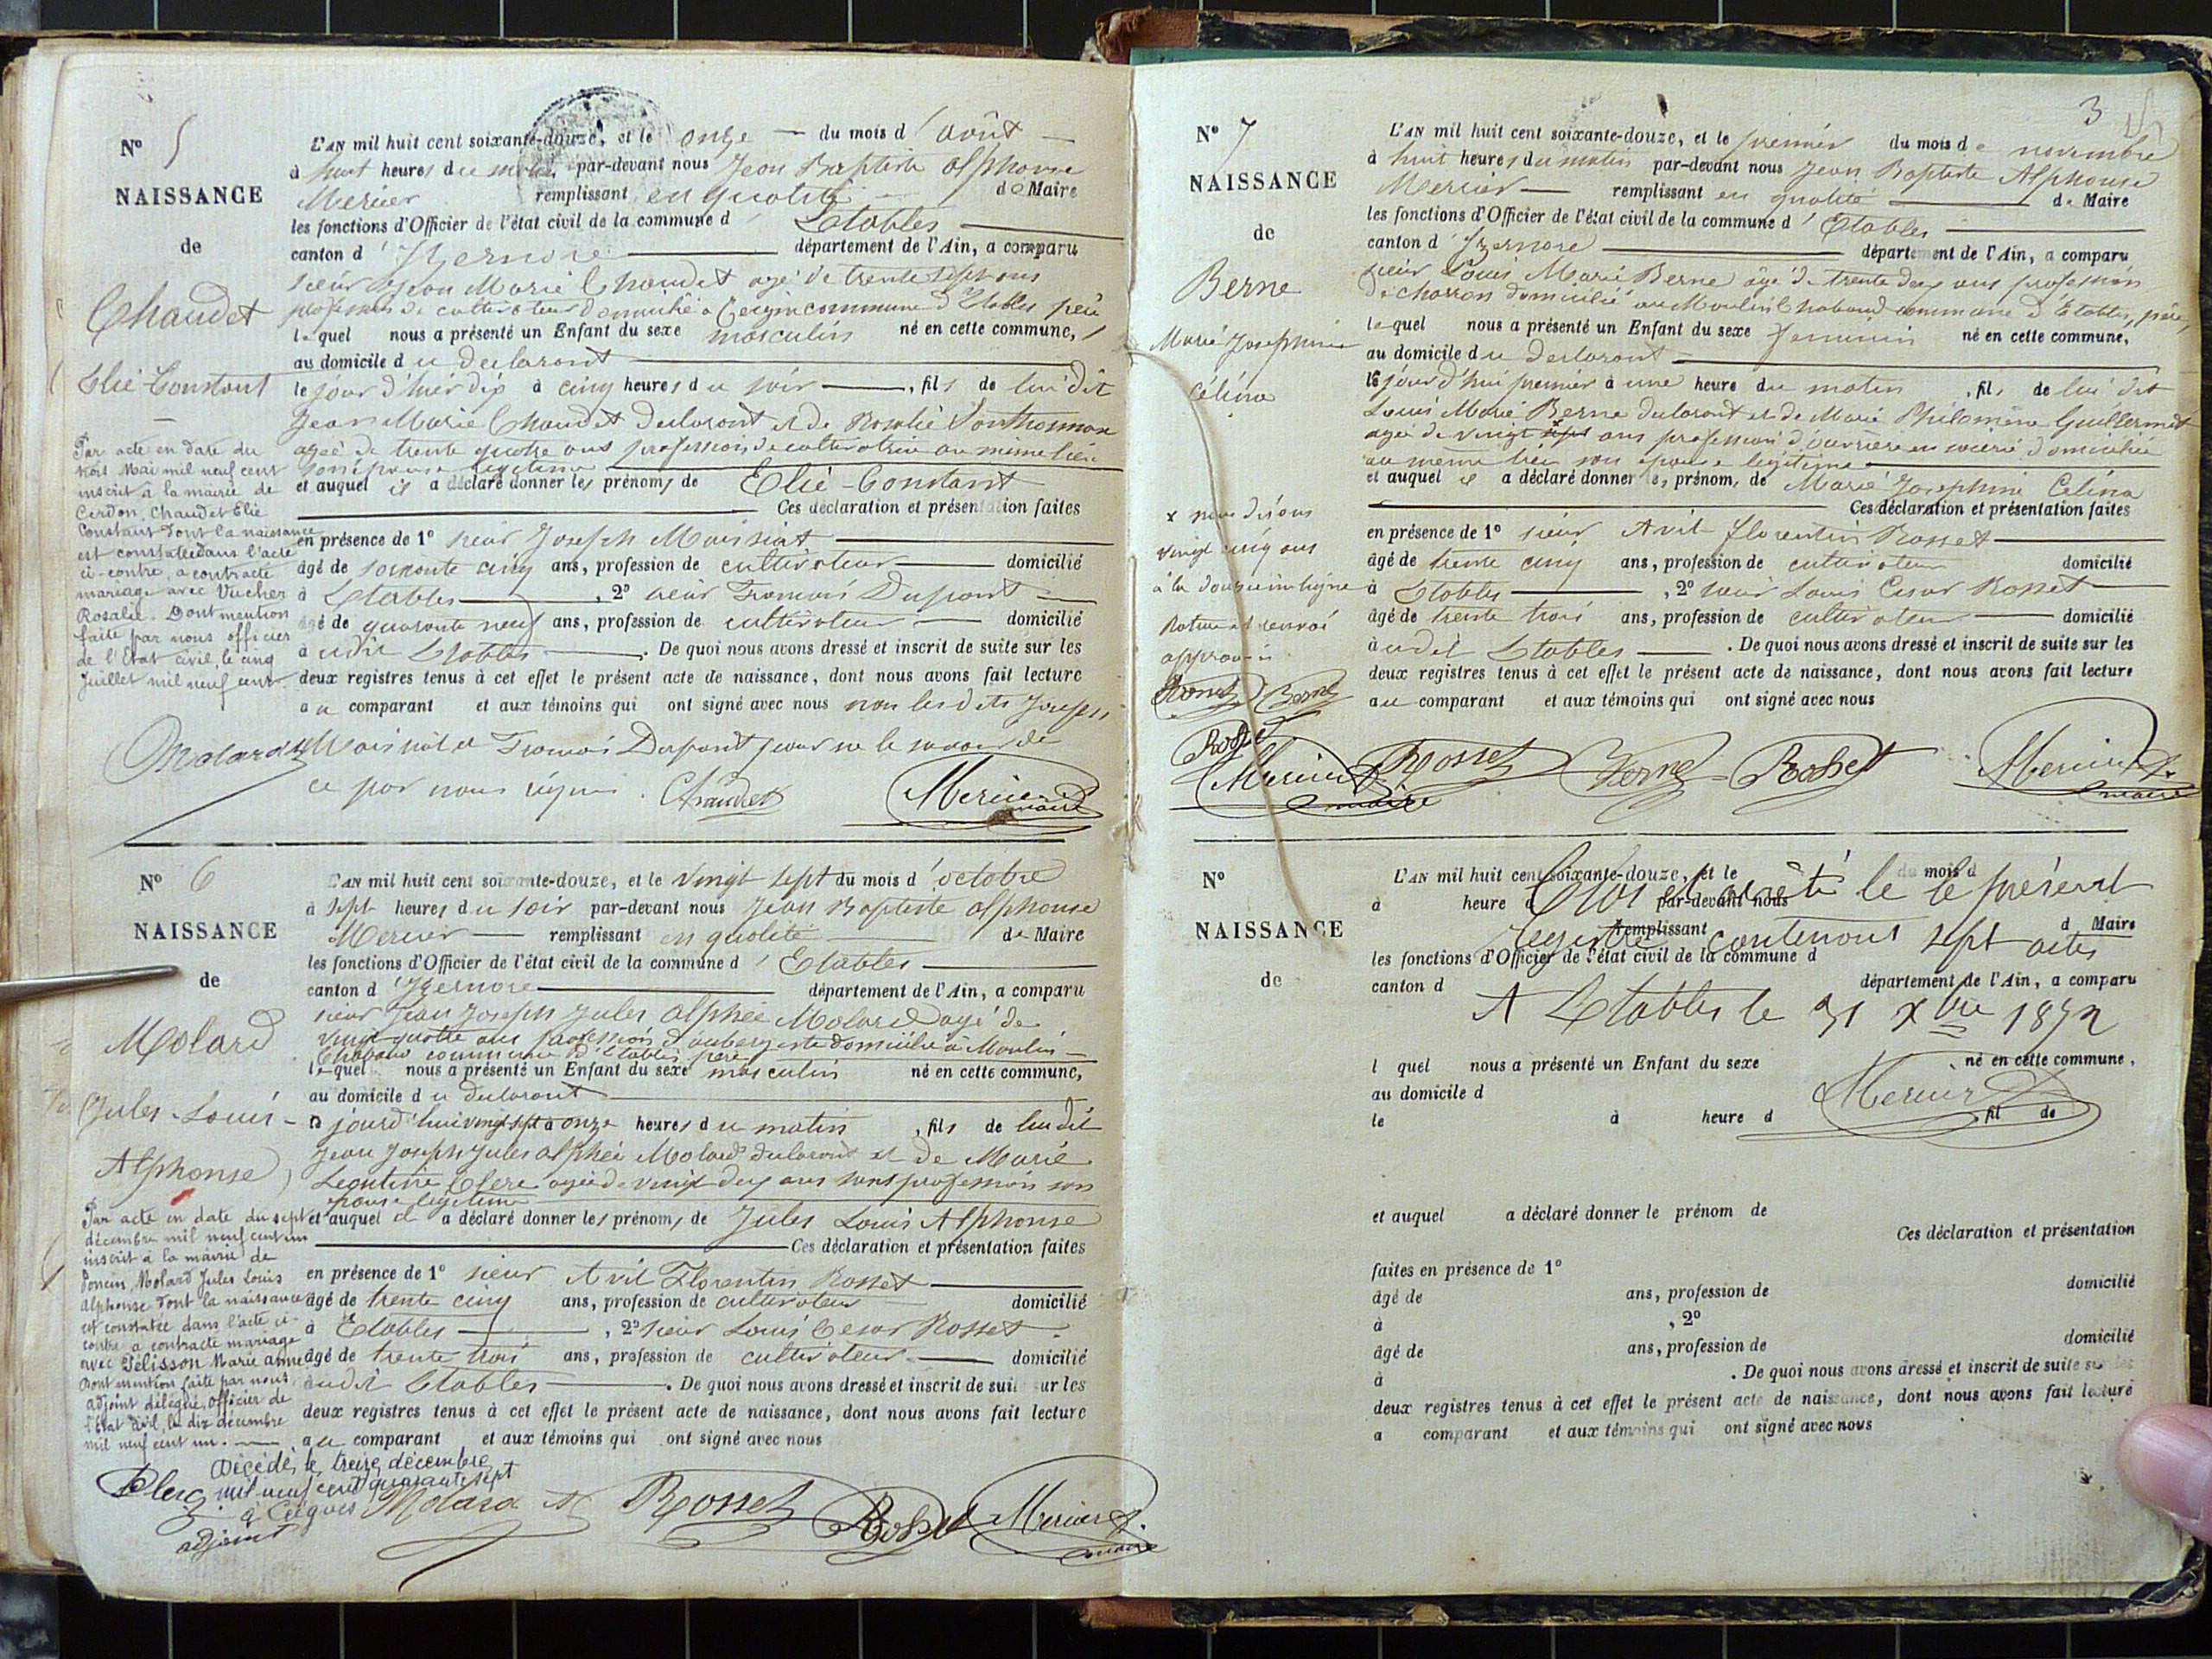 N° 5
NAISSANCE
de
Chaudet
Elie Constant
Par acte en date du
trois Mai mil neuf cent
inscrit à la mairie de
Cerdon, Chaudet Elie
Constant dont la naissance
est constatée dans l'acte
ci-contre, a contracté
mariage avec Vucher
Rosalie. Dont mention
faite par nous officier
de l'Etat civil, le cinq
Juillet mil neuf cent
Molard
L'AN mil huit cent soixante-douze, et le onze du mois d'août
à huit heures du matin par-devant nous Jean Baptiste alphonse
Mercier remplissant en qualité de Maire
les fonctions d'Officier de l'état civil de la commune d' Etables
canton d' Izernore département de l'Ain, a comparu
sieur Jean Marie Chaudet agé de trente sept ans
profession de cultivateur domicilié à commune d'Etables père
lequel nous a présenté un Enfant du sexe masculin né en cette commune,
au domicile du declarant
le jour d'hier dix à cinq heures du soir, fils de lui dit
Jean Marie Chaudet declarant et de Rosalie
agée de trente quatre ans profession de cultivatrice au même lieu
son épouse legitime
et auquel il a déclaré donner les prénoms de Elie-Constant
Ces déclaration et présentation faites
en présence de 1° sieur Joseph Moissiat
âgé de soixante cinq ans, profession de cultivateur domicilié
à Etables, 2° sieur Francois Dupont
âgé de quarante neuf ans, profession de cultivateur domicilié
à udit Etables. De quoi nous avons dressé et inscrit de suite sur les
deux registres tenus à cet effet le présent acte de naissance, dont nous avons fait lecture
au comparant et aux témoins qui ont signé avec nous non lesdits Joseph
Moissiat et Francois Dupont pour ne le savoir de
ce par nous réquis. Chaudet Mercier maire
N° 6
NAISSANCE
de
Molard
Jules Louis
Alphonse
Par acte en date du sept
décembre mil neuf cent un
inscrit à la mairie de
Poncin, Molard Jules Louis
Alphonse dont la naissance
est constatée dans l'acte ci-
contre a contracté mariage
avec Pélisson Marie anne
dont mention faite par nous
adjoint délégué, officier de
l'Etat civil, le dix décembre
mil neuf cent un.
L'AN mil huit cent soixante-douze, et le vingt sept du mois d'octobre
à sept heures du soir par-devant nous Jean Baptiste alphonse
Mercier remplissant en qualité de Maire
les fonctions d'Officier de l'état civil de la commune d' Etables
canton d' Izernore département de l'Ain, a comparu
sieur Jean Joseph Jules alphée Molard agé de
vingt quatre ans profession d'aubergiste domicilié à Moulin
Chabaud commune d'Etables père
lequel nous a présenté un Enfant du sexe masculin né en cette commune,
au domicile du declarant
ce jourd'hui vingt sept à onze heures du matin, fils de lui dit
Jean Joseph Jules alphée Molard declarant et de Marie
Leontine Clerc agée de vingt deux ans sans profession son
épouse légitime
et auquel il a déclaré donner les prénoms de Jules Louis Alphonse
Ces déclaration et présentation faites
en présence de 1° sieur Avit Florentin Rosset
âgé de trente cinq ans, profession de cultivateur domicilié
à Etables, 2° sieur Louis Cesar Rosset
âgé de trente trois ans, profession de cultivateur domicilié
audit Etables. De quoi nous avons dressé et inscrit de suite sur les
deux registres tenus à cet effet le présent acte de naissance, dont nous avons fait lecture
au comparant et aux témoins qui ont signé avec nous
Décédé le treize décembre
mil neuf cent quarante sept
à
adjoint
Molard Rosset Rosset Mercier maire
3
N° 7
NAISSANCE
de
Berne
Marie Josephine
Célina
x nous disons
vingt cinq ans
à la douzieme ligne
Rature et renvoi
approuvés
Rosset Berne
Rosset
Mercier maire
L'AN mil huit cent soixante-douze, et le premier du mois de novembre
à huit heures du matin par-devant nous Jean Baptiste Alphonse
Mercier remplissant en qualité de Maire
les fonctions d'Officier de l'état civil de la commune d' Etables
canton d' Izernore département de l'Ain, a comparu
sieur Louis Marie Berne âgé de trente deux ans profession
de charron domicilié au Moulin Chabaud commune d'Etables, père,
lequel nous a présenté un Enfant du sexe feminin né en cette commune,
au domicile du declarant
le jourd'hui premier à une heure du matin, fils de lui dit
Louis Marie Berne declarant et de Marie Philomène Guillermet
agée de vingt sept ans profession d'ouvrière en soierie domiciliée
au même lieu son épouse legitime
et auquel il a déclaré donner les prénoms de Marie Josephine Célina
Ces déclaration et présentation faites
en présence de 1° sieur Avit florentin Rosset
âgé de trente cinq ans, profession de cultivateur domicilié
à Etables, 2° sieur Louis Cesar Rosset
âgé de trente trois ans, profession de cultivateur domicilié
audit Etables. De quoi nous avons dressé et inscrit de suite sur les
deux registres tenus à cet effet le présent acte de naissance, dont nous avons fait lecture
au comparant et aux témoins qui ont signé avec nous
Rosset Berne Rosset Mercier maire
N°
NAISSANCE
de
L'AN mil huit cent soixante-douze, et le du mois d
Clos et arrêté le le présent
à heure d par-devant nous
remplissant d Maire
registre contenant sept actes
les fonctions d'Officier de l'état civil de la commune d
canton d département de l'Ain, a comparu
A Etables le 31 xbre 1872
l quel nous a présenté un Enfant du sexe né en cette commune,
Mercier
au domicile d
le à heure d fil de
et auquel a déclaré donner le prénom de
Ces déclaration et présentation
faites en présence de 1°
âgé de ans, profession de domicilié
à , 2°
âgé de ans, profession de domicilié
à . De quoi nous avons dressé et inscrit de suite sur les
deux registres tenus à cet effet le présent acte de naissance, dont nous avons fait lecture
a comparant et aux témoins qui ont signé avec nous